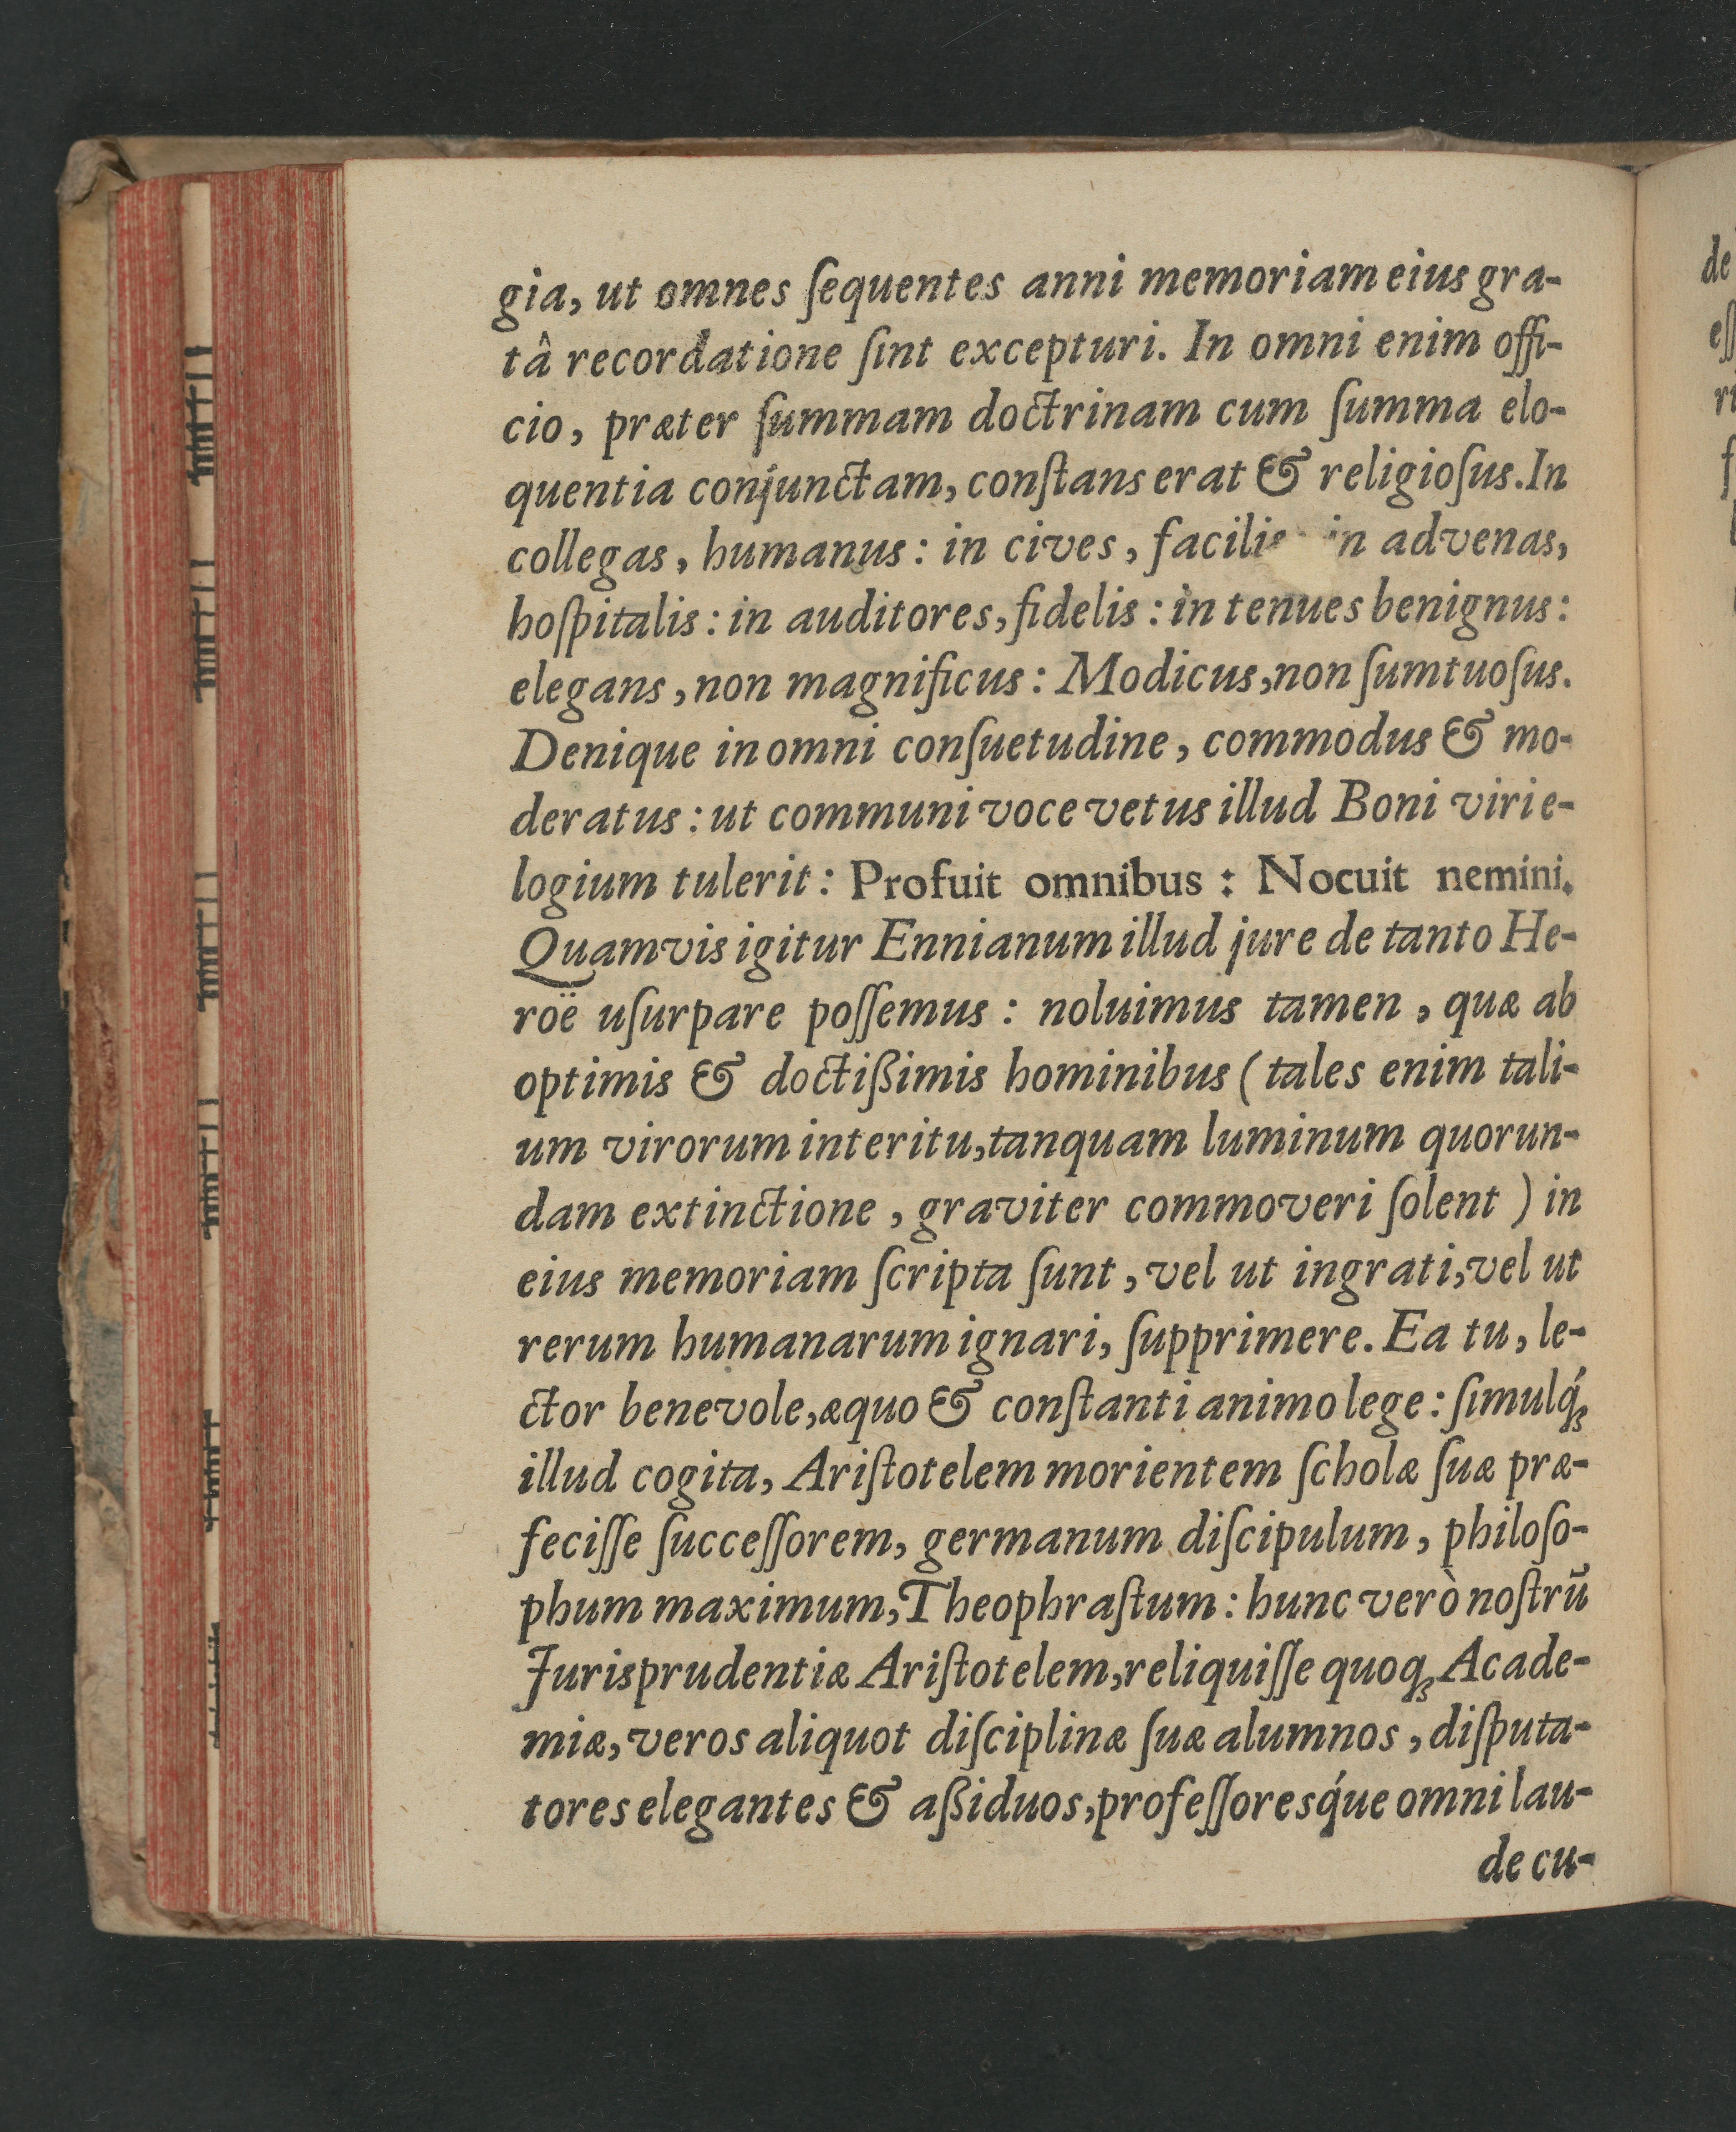 gia, ut omnes ſequentes anni memoriam eius gra-
tâ recordatione ſint excepturi. In omni enim offi-
cio, præter ſummam doctrinam cum ſumma elo-
quentia conjunctam, conſtans erat & religioſus. In
collegas, humanus: in cives, facilis in advenas,
hoſpitalis: in auditores, fidelis: in tenues benignus:
elegans, non magnificus: Modicus, non ſumtuoſus.
Denique in omni conſuetudine, commodus & mo-
deratus: ut communi voce vetus illud Boni viri e-
logium tulerit: Profuit omnibus: Nocuit nemini.
Quamvis igitur Ennianum illud jure de tanto He-
roë uſurpare poſſemus: noluimus tamen, quæ ab
optimis & doctißimis hominibus (tales enim tali-
um virorum interitu, tanquam luminum quorun-
dam extinctione, graviter commoveri ſolent) in
eius memoriam ſcripta ſunt, vel ut ingrati, vel ut
rerum humanarum ignari, ſupprimere. Ea tu, le-
ctor benevole, æquo & conſtanti animo lege: ſimulq́;
illud cogita, Ariſtotelem morientem ſcholæ ſuæ præ-
feciſſe ſucceſſorem, germanum diſcipulum, philoſo-
phum maximum, Theophraſtum: hunc verò noſtrū
Jurisprudentiæ Ariſtotelem, reliquiſſe quoq; Acade-
miæ, veros aliquot diſciplinæ ſuæ alumnos, diſputa-
tores elegantes & aßiduos, profeſſoresq́ue omni lau-
de cu-